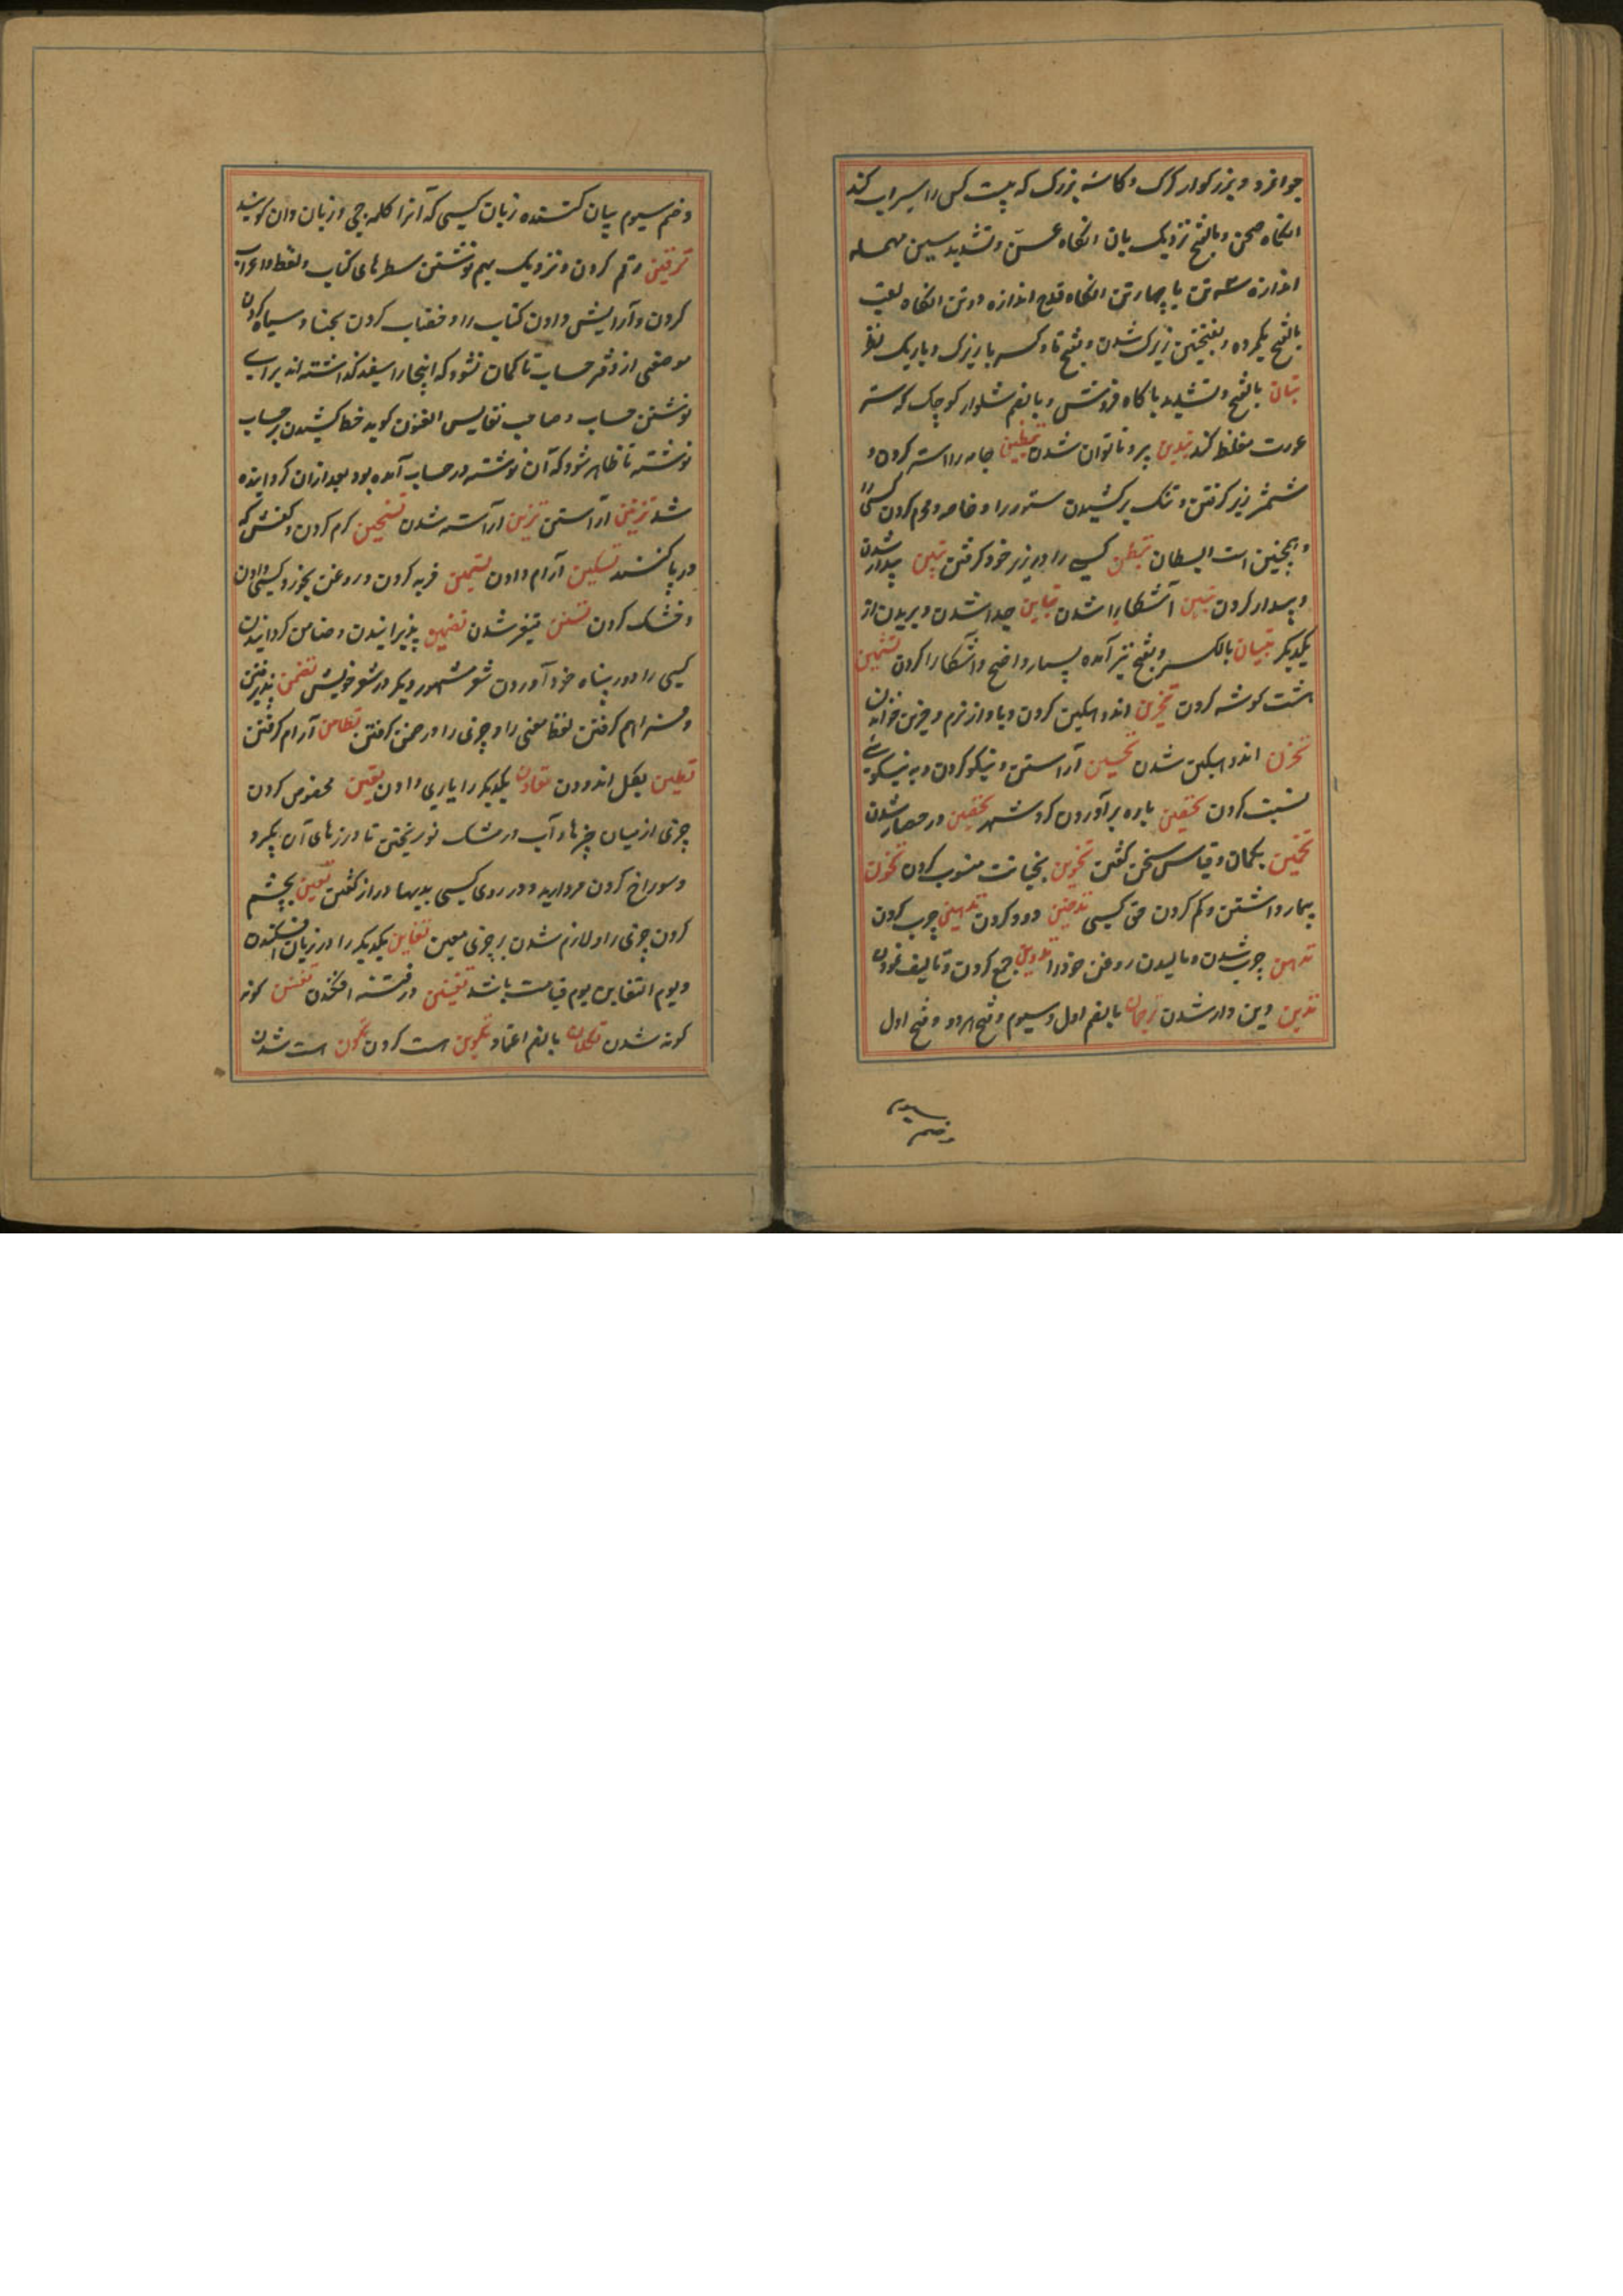 جوانمرد و بزرگوار کرک و کاسهٔ بزرگ که بیست کس را سیراب کند
انگاه صحن و بالفتح نزدیک بان انگاه عس و تشدید سین مهمله
اندازه سه تن یا چهار تن انگاه قدح اندازه دو تن انگاه قعب
بالفتح یکمرده و بفتحتین زیرک شدن و بفتح تا و کسر با زیرک و باریک نظر
تبان بالفتح و تشدید با کاه فروش و بالضم شلوار کوچک که ستر
عورت مغلظ کند تبدین پیر و ناتوان شدن تبطین جامه را استر کردن و
شمشیر زیر گرفتن و تنک برکشیدن ستور را و خاصه و محرم کردن کسی را
و همچنین است ابطان تبطن کسی را در زیر خود گرفتن تبین پیدا شدن
و پیدا کردن تبین آشکارا شدن تباین جدا شدن و بریدن از
یکدیگر تبیان بالکسر و بفتح نیز آمده بسیار واضح و آشکارا کردن تثمین
هشت گوشه کردن تحزین اندوهگین کردن و باواز نرم و حزین خواندن
تحزن اندوهگین شدن تحسین آراستن و نیکو کردن و به نیکویی
نسبت کردن تحصین باره برآوردن گرد شهر تحصن در حصار شدن
تخمین بکمان و قیاس سخن گفتن تخوین بخیانت منسوب کردن تخون
بیمار داشتن و کم کردن حق کسی تدخین دود کردن تدهین چرب کردن
تدهن چرب شدن و مالیدن روغن خود را تدوین جمع کردن و تالیف نمودن
تدین دین دار شدن ترجمان بالضم اول و سیوم و فتح هر دو و فتح اول
و ضم سیوم
و ضم سیوم بیان کننده زبان کسی که آنرا کلمه‌چی و زبان دان گویند
ترقین رقم کردن و نزدیک بهم نوشتن سطرهای کتاب و نقط و اعراب
کردن و آرایش دادن کتاب را و خضاب کردن بحنا و سیاه کردن
موضعی از دفتر حساب تا کمان نشود که اینجا را سفید گذاشته‌اند برای
نوشتن حساب و صاحب نفایس الفنون گوید خط کشیدن بر حساب
نوشته تا ظاهر شود که آن نوشته در حساب آمده بود بعد ازان گردانیده
شد تزیین آراستن تزین آراسته شدن تسخین گرم کردن و کفش که
در پا کنند تسکین آرام دادن تسمین فربه کردن و روغن بخورد کسی دادن
و خشک کردن تسنن متغیر شدن تضمین پذیرانیدن و ضامن گردانیدن
کسی را و در پناه خود آوردن شعر مشهور دیگر در شعر خویش تضمن پذیرفتن
و فراهم گرفتن لفظ معنی را و چیزی را در ضمن گرفتن تطامن آرام گرفتن
تطیین بگل اندودن تعاون یکدیگر را یاری دادن تعیین مخصوص کردن
چیزی از میان چیزها و آب در مشک نو ریختن تا درزهای آن بگیرد
و سوراخ کردن مروارید و در روی کسی بدیها دراز گفتن تعین بچشم
کردن چیزی را و لازم شدن بر چیزی معین تغابن یکدیگر را در زیان افکندن
و یوم التغابن یوم قیامت باشد تفتین در فتنه افکندن تفنن گونه
گونه شدن تکلان بالضم اعتماد تکوین هست کردن تکون هست شدن